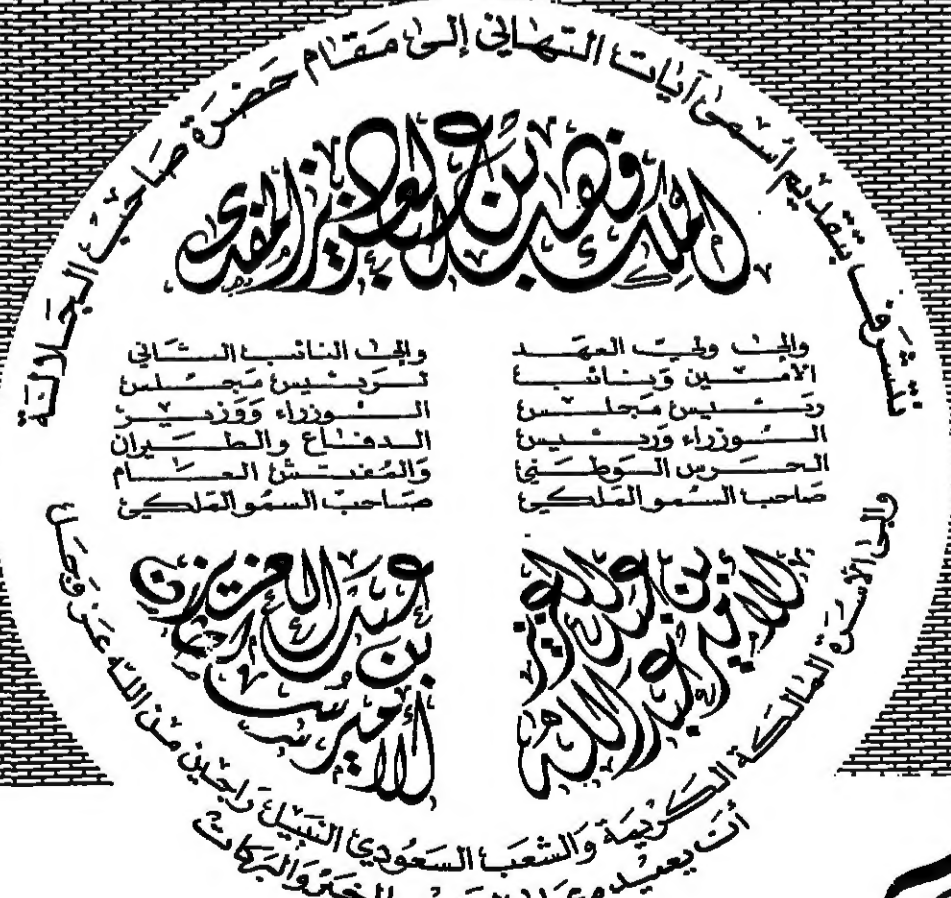 نتشرف بتقديم أسمى آيات التهاني إلى مقام حضرة صاحب الجلالة
الملك فهد بن عبد العزيز المفدى
والى ولي العهد
الأمين ونائب
رئيس مجلس
الوزراء ورئيس
الحرس الوطني
صاحب السمو الملكي
الأمير عبد الله
بن عبد العزيز
والى النائب الثاني
لرئيس مجلس
الوزراء ووزير
الدفاع والطيران
والمفتش العام
صاحب السمو الملكي
الأمير سلطان
بن عبد العزيز
والى الأسرة المالكة الكريمة والشعب السعودي النبيل راجين من الله عز وجل
أن يعيد بالخير والبركات